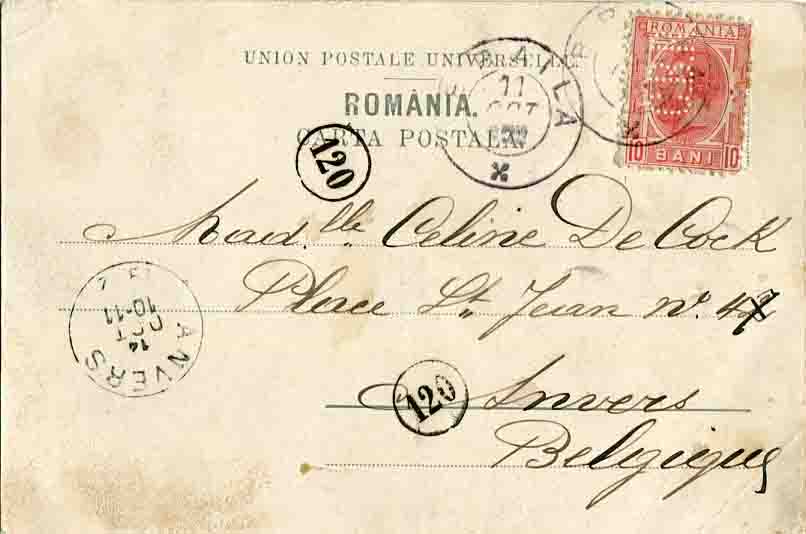 UNION POSTALE UNIVERSELLE.
ROMÂNIA.
CARTA POSTALA.
BRAILA
11
OCT
ROMANIA
10 BANI 10
120
Mad.lle Celine De Cock
Place St. Jean n°. 47
Anvers
Belgique
120
ANVERS
14
OCT
10-11